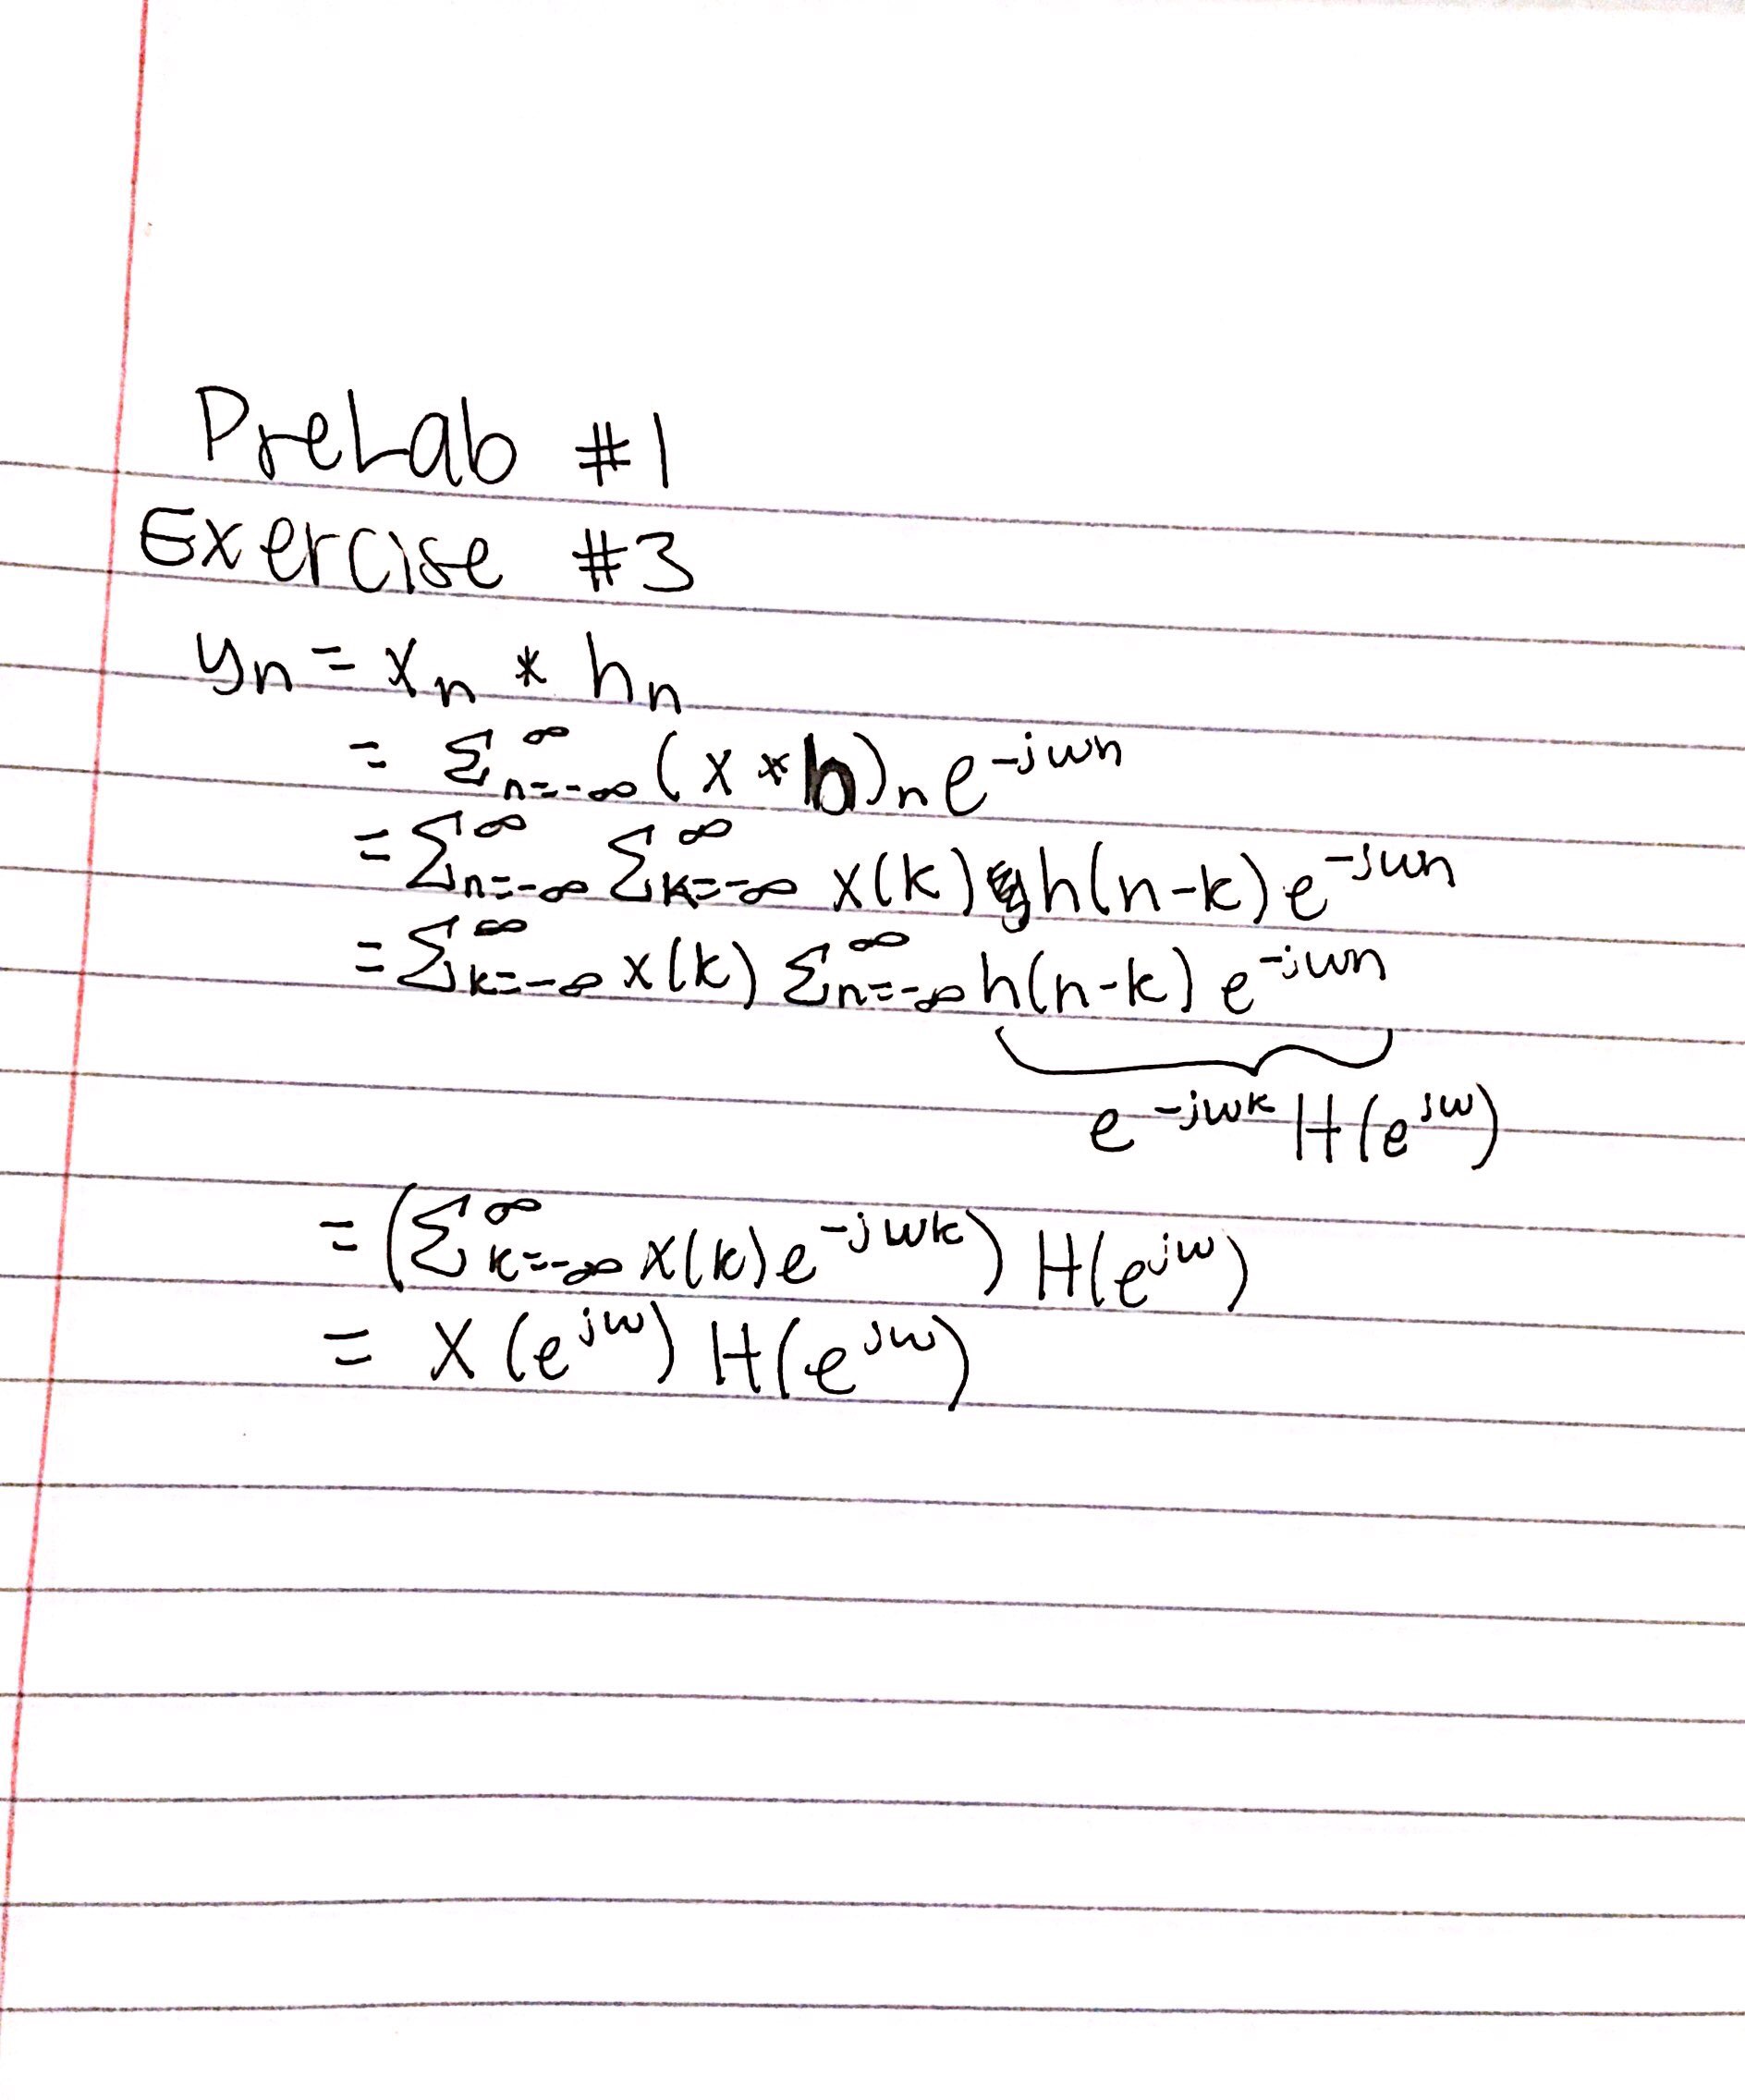 PreLab #1
Exercise #3
yn = xn * hn
= Σ∞n=-∞ (x * h)n e^-jωn
= Σ∞n=-∞ Σ∞k=-∞ x(k) h(n-k) e^-jωn
= Σ∞k=-∞ x(k) Σ∞n=-∞ h(n-k) e^-jωn
e^-jωk H(e^jω)
= (Σ∞k=-∞ x(k) e^-jωk) H(e^jω)
= X(e^jω) H(e^jω)